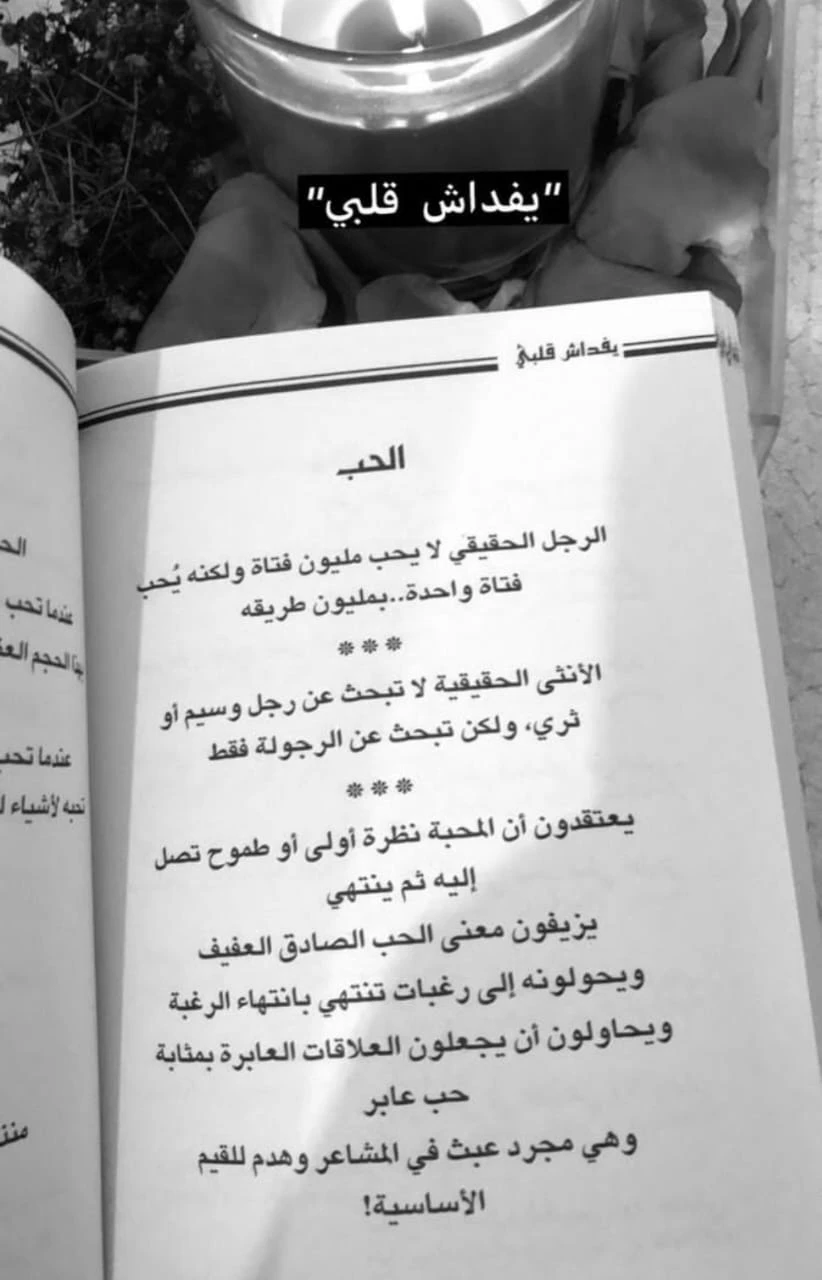 "يفداش قلبي"
يفداش قلبي
الحب
الرجل الحقيقي لا يحب مليون فتاة ولكنه يُحب
فتاة واحدة..بمليون طريقه
***
الأنثى الحقيقية لا تبحث عن رجل وسيم أو
ثري، ولكن تبحث عن الرجولة فقط
***
يعتقدون أن المحبة نظرة أولى أو طموح تصل
إليه ثم ينتهي
يزيفون معنى الحب الصادق العفيف
ويحولونه إلى رغبات تنتهي بانتهاء الرغبة
ويحاولون أن يجعلون العلاقات العابرة بمثابة
حب عابر
وهي مجرد عبث في المشاعر وهدم للقيم
الأساسية!
عندما تحب
الحجم
عندما تحب
تحبه لأشياء